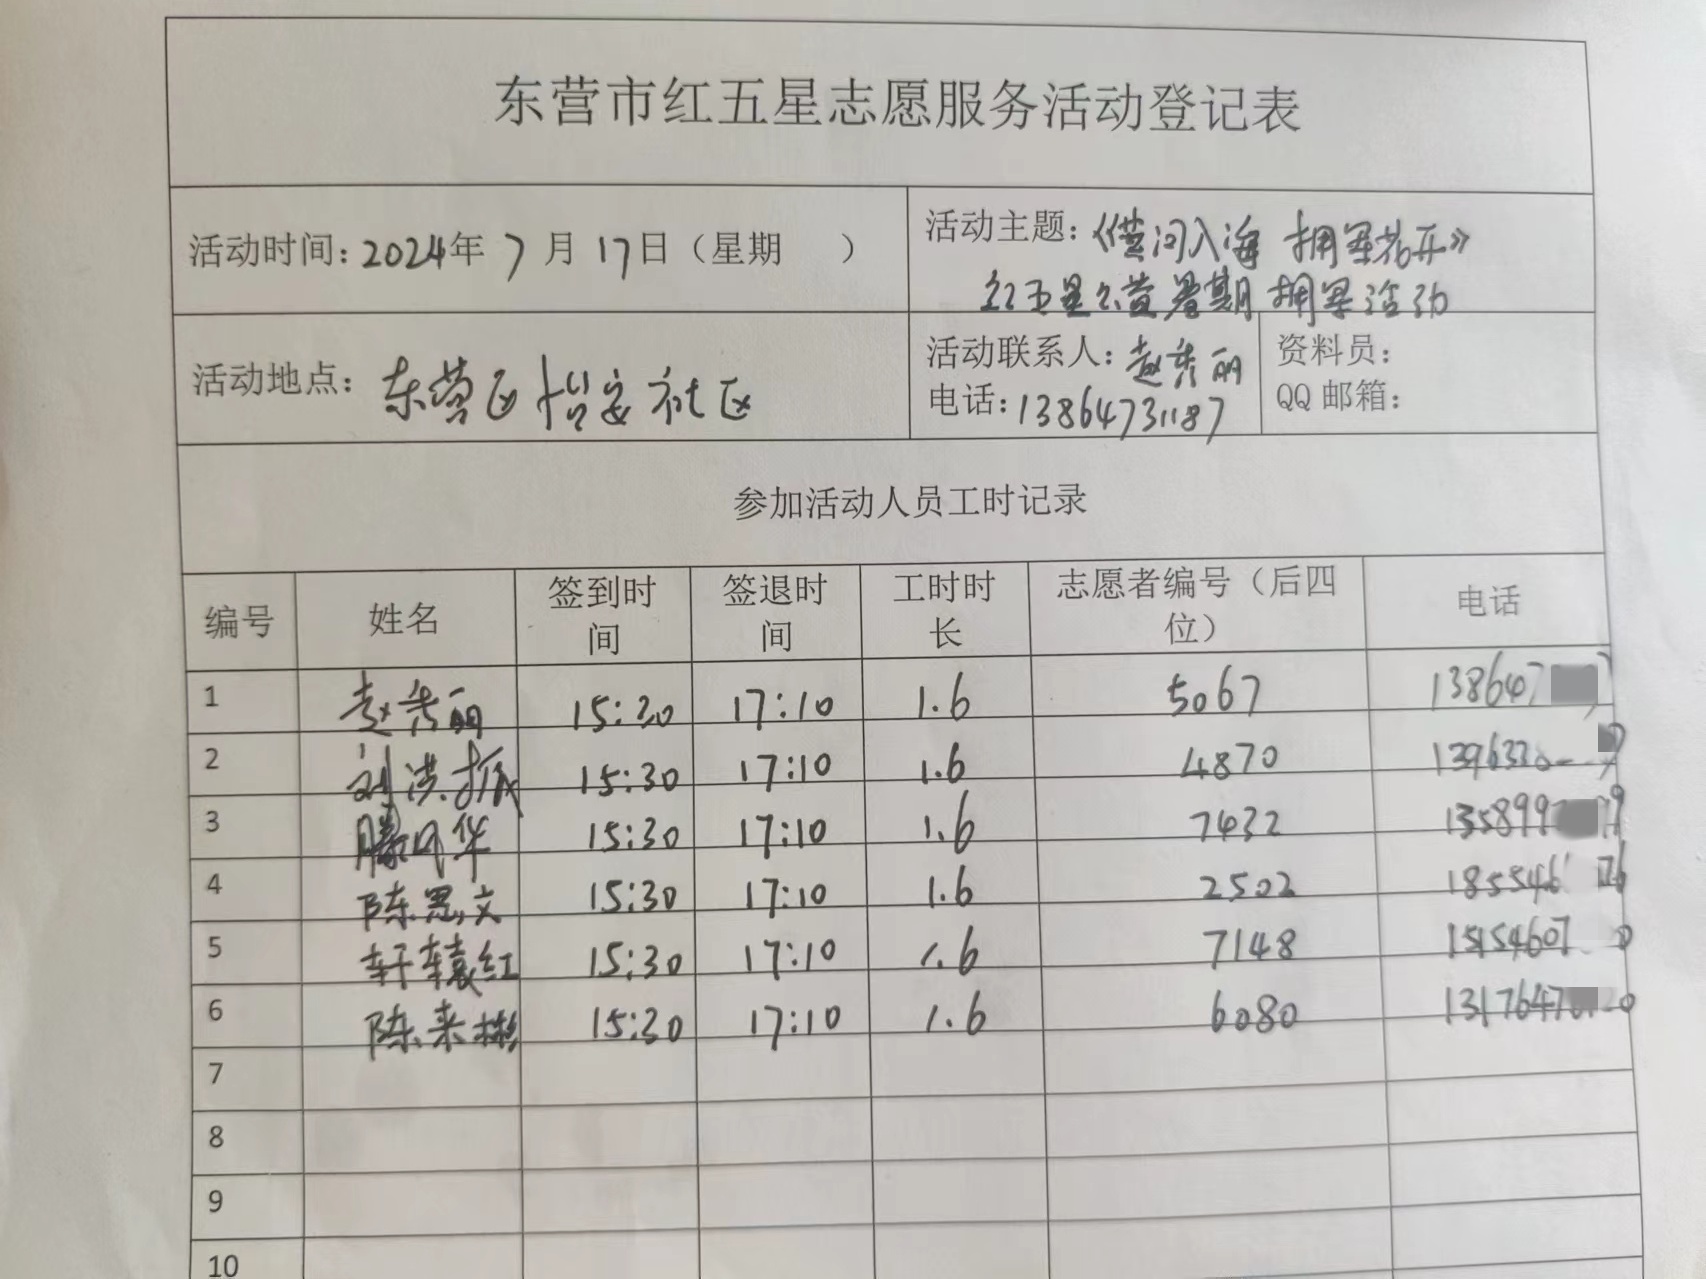 东营市红五星志愿服务活动登记表
活动时间：2024年 7 月 17日（星期 ）
活动主题：《黄河入海 拥军花开》
红五星公益暑期拥军活动
活动地点：东营区怡安社区
活动联系人：赵秀丽
电话：13864731187
资料员：
QQ 邮箱：
参加活动人员工时记录
编号 姓名 签到时间 签退时间 工时时长 志愿者编号（后四位） 电话
1 赵秀丽 15:30 17:10 1.6 5067 138647
2 刘洪振 15:30 17:10 1.6 4870
3 滕风华 15:30 17:10 1.6 7432 135899
4 陈思文 15:30 17:10 1.6 2502 185546
5 轩辕红 15:30 17:10 1.6 7148 15154607
6 陈来彬 15:30 17:10 1.6 6080 1317647
7
8
9
10